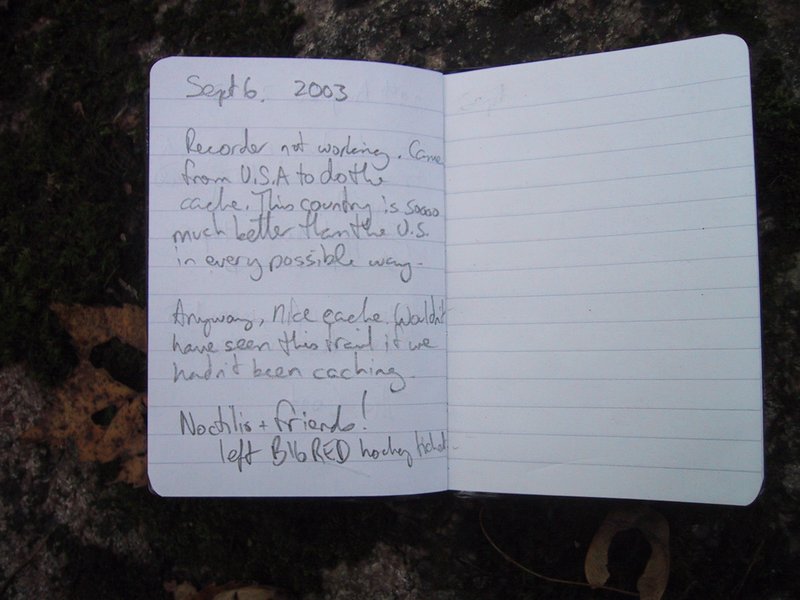 Sept 6. 2003
Recorder not working. Came
from U.S.A to do the
cache. This country is soooo
much better than the U.S.
in every possible way.
Anyway, nice cache. Wouldn't
have seen this trail if we
hadn't been caching.
Noctilis + friends!
left BIG RED hockey ticket